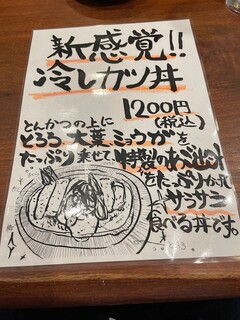 新感覚!!
冷しカツ丼
1200円
(税込)
とんかつの上に
とろろ、大葉、ミョウガを
たっぷり乗せて、特製のあご出汁
をたっぷりかけ
サラサラ
食べる丼です。